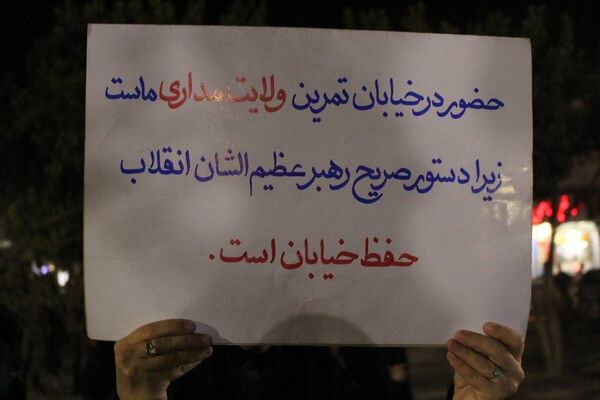 حضور در خیابان تمرین ولایت مداری ماست
زیرا دستور صریح رهبر عظیم الشان انقلاب
حفظ خیابان است.